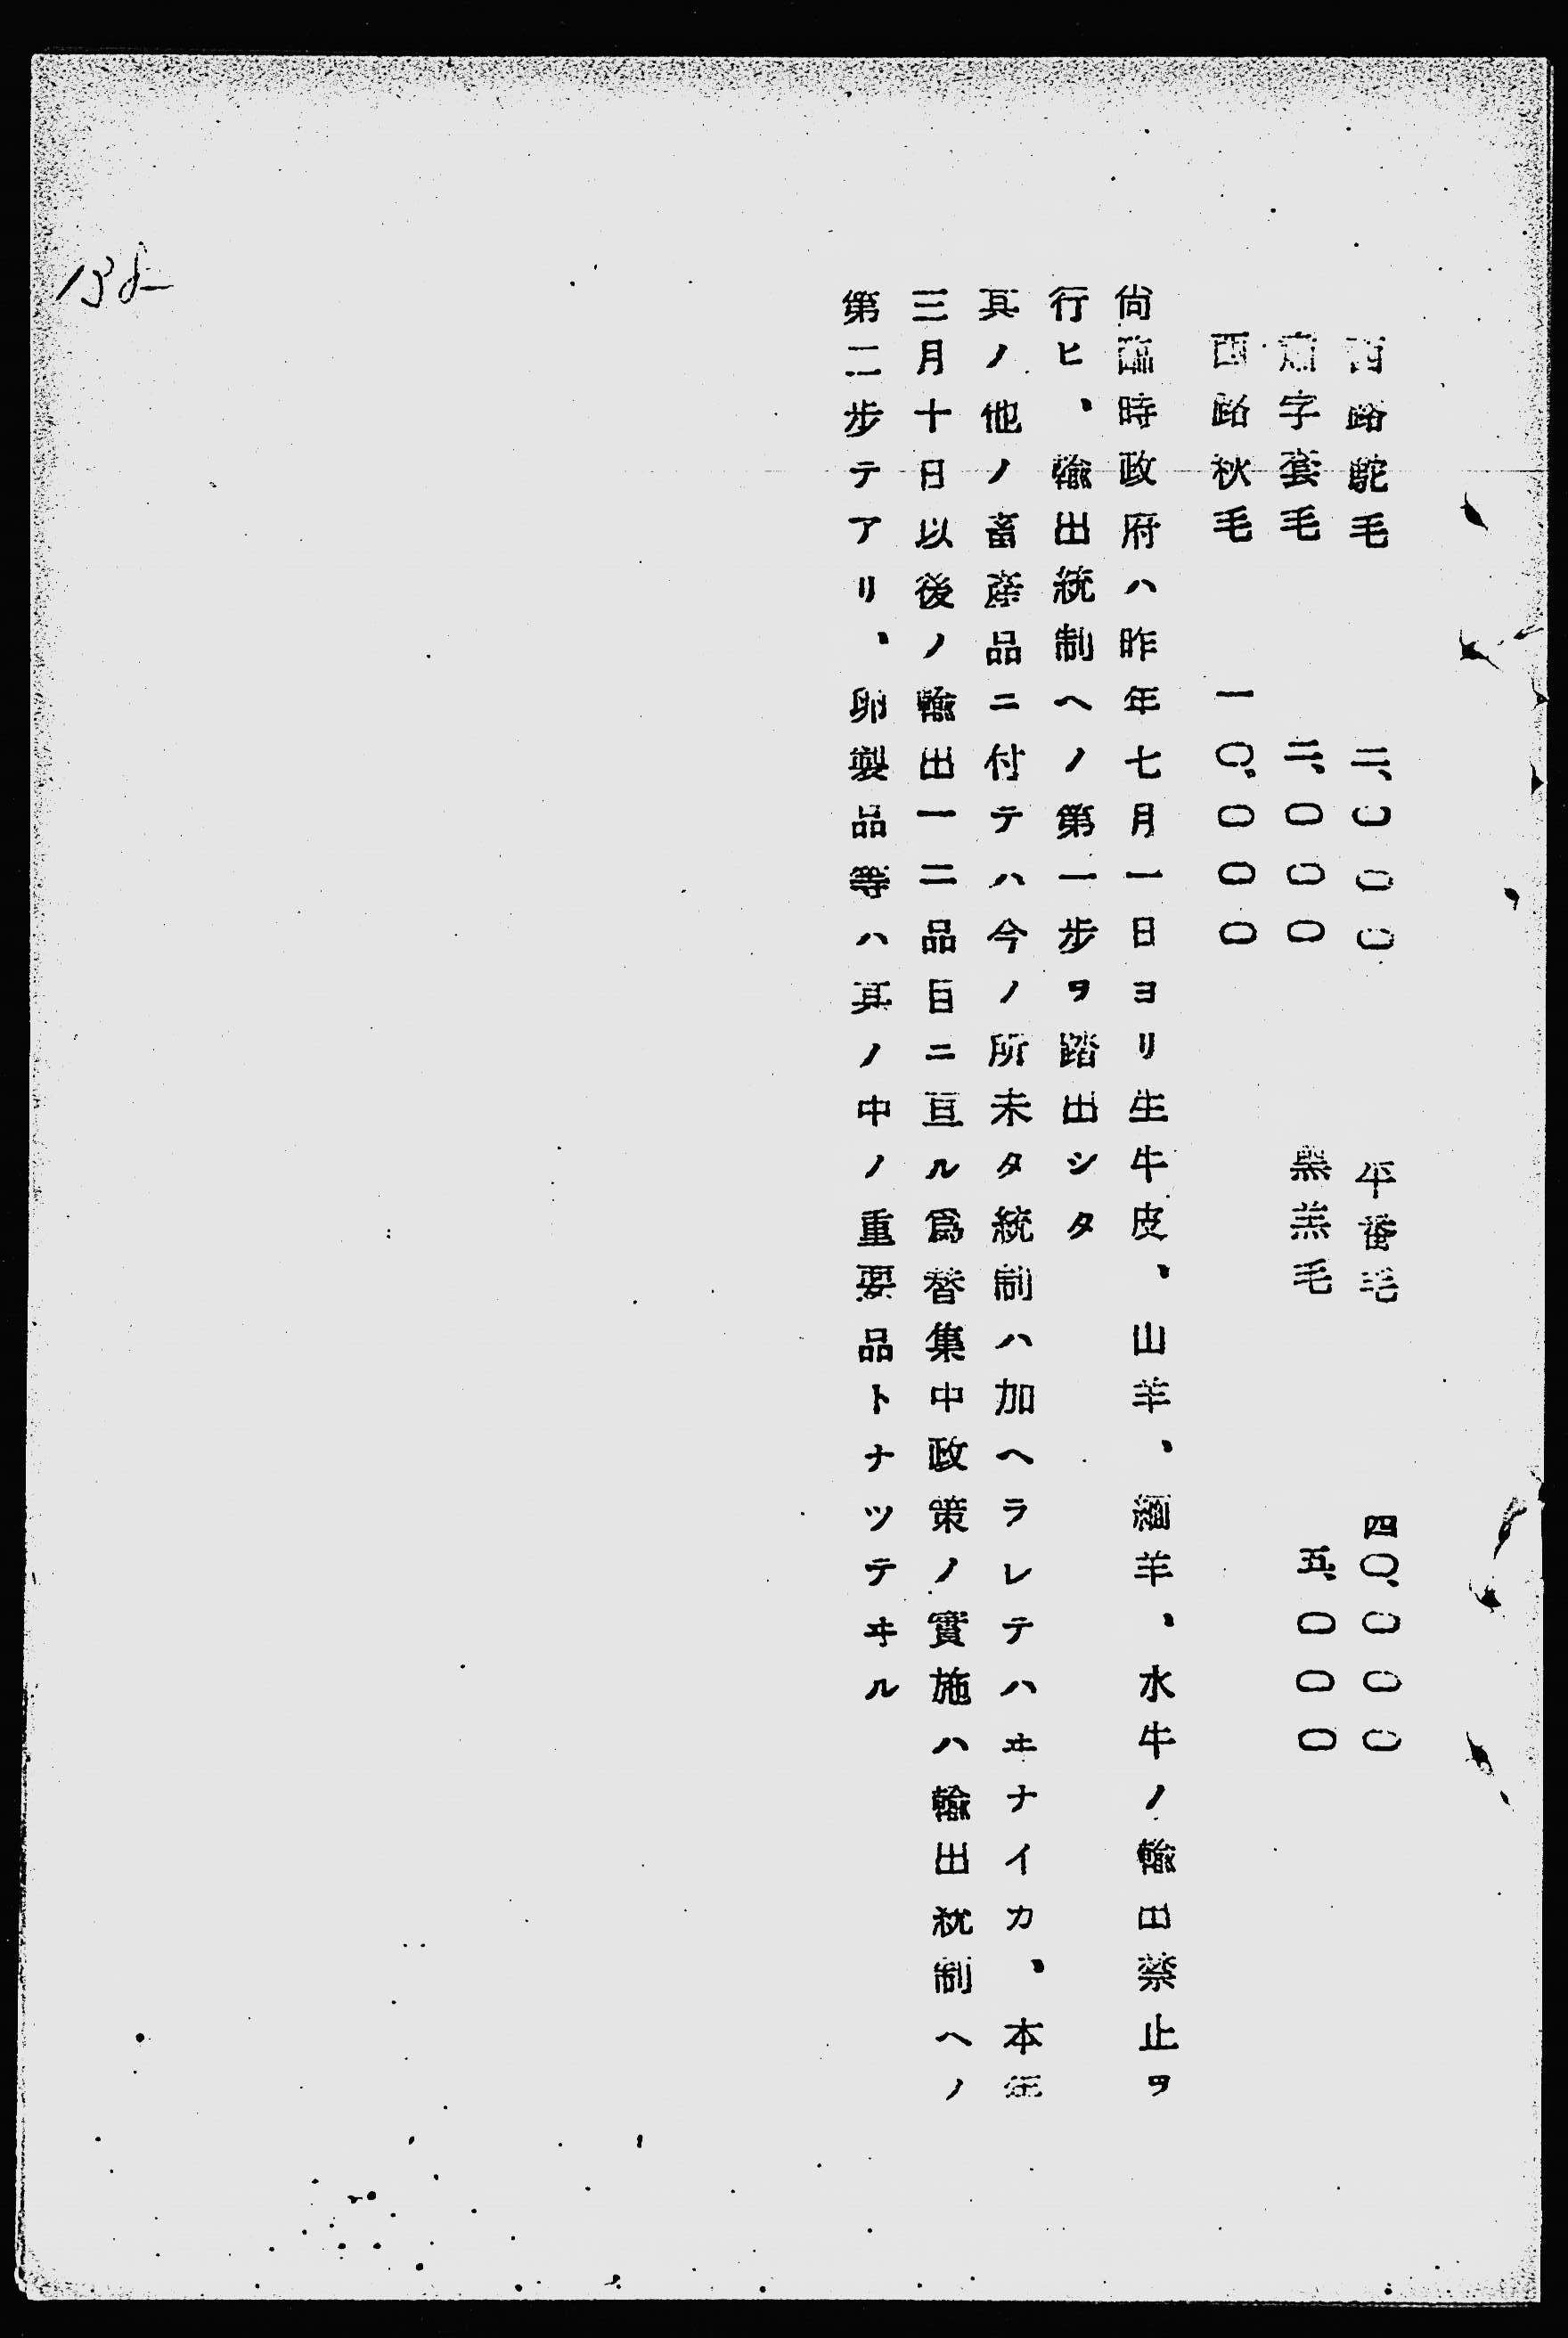 西路駝毛　二、〇〇〇　平番毛　四〇、〇〇〇
字套毛　二、〇〇〇　黑羔毛　五、〇〇〇
西路秋毛　一〇、〇〇〇
尙臨時政府ハ昨年七月一日ヨリ生牛皮、山羊、緬羊、水牛ノ輸出禁止ヲ
行ヒ、輸出統制ヘノ第一步ヲ踏出シタ
其ノ他ノ畜產品ニ付テハ今ノ所未タ統制ハ加ヘラレテハヰナイカ、本年
三月十日以後ノ輸出一二品目ニ亘ル爲替集中政策ノ實施ハ輸出統制ヘノ
第二步テアリ、卵製品等ハ其ノ中ノ重要品トナツテヰル